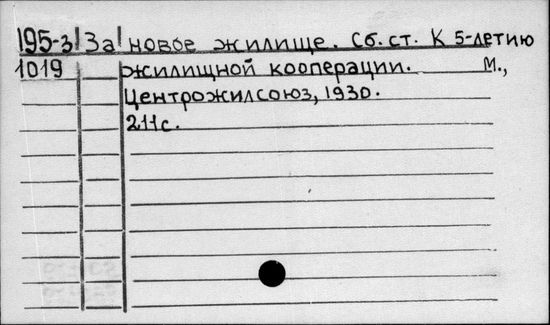 195-3 За новое жилище. Сб. ст. К 5-летию
1019 жилищной кооперации. М.,
Центрожилсоюз, 1930.
211с.